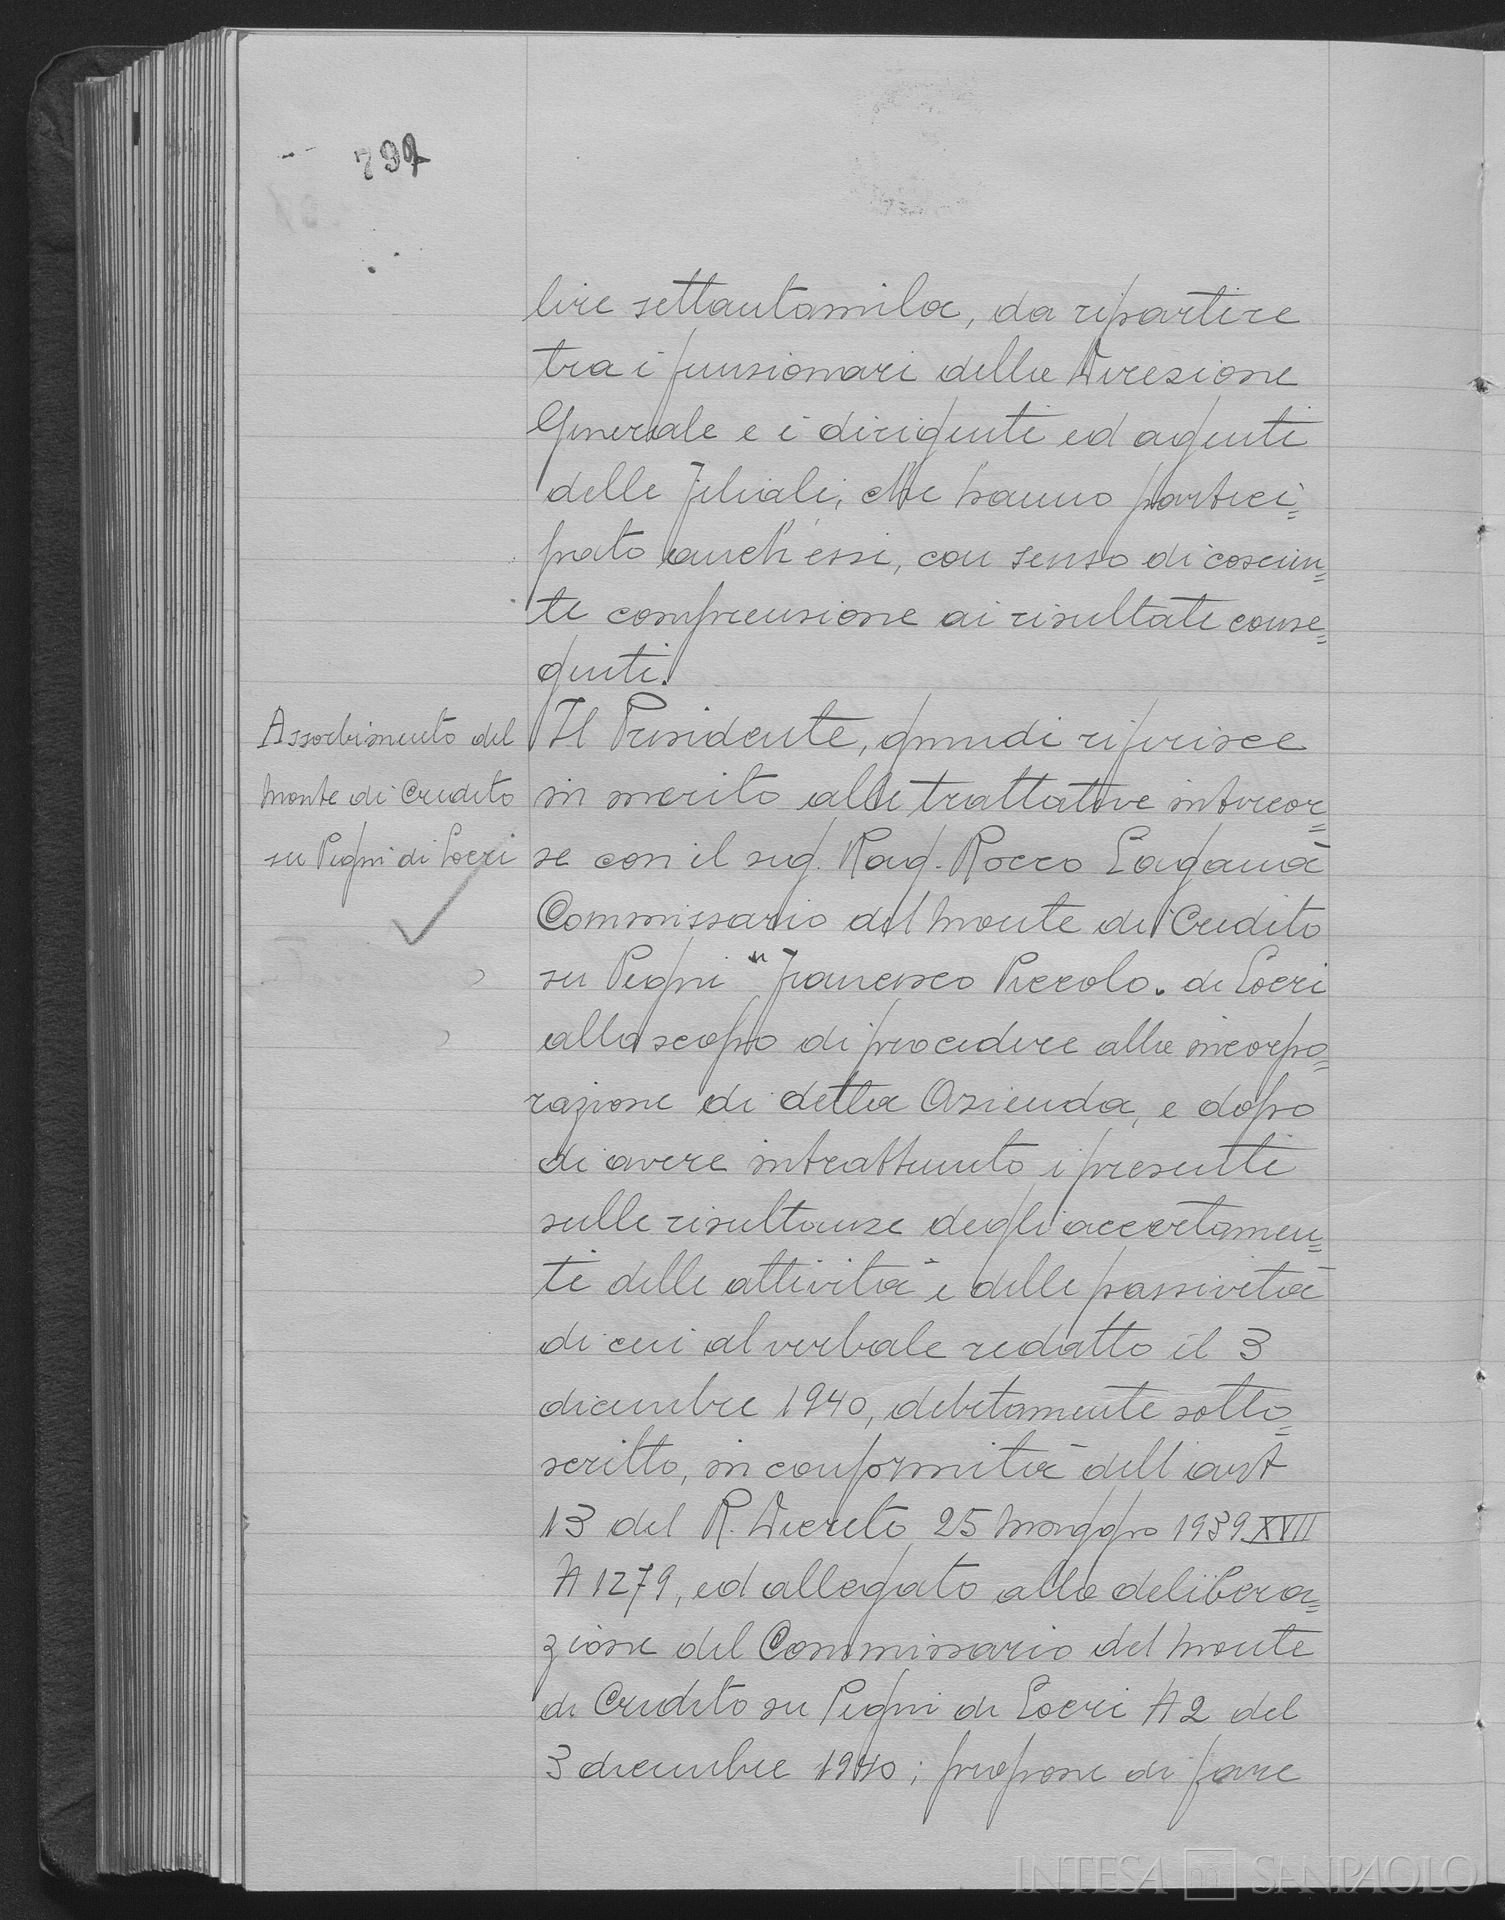 797
lire settantamila, da ripartire
tra i funsionari della Diresione
Generale e i dirigenti ed agenti
delle Filiali, che hanno parteci=
pato anch'essi, con senso di coscien=
te comprensione ai risultati conse=
guiti.
Assorbimento del
Monte di Credito
su Pegni di Locri
Il Presidente, quindi riferisce
in merito alle trattative intercor=
se con il sig. Rag. Rocco Laganà
Commissario del Monte di Credito
su Pegni "Francesco Piccolo" di Locri
allo scopo di procedere alla incorpo=
razione di detta Asienda, e dopo
di avere intrattenuto i presenti
sulle risultanze degli accertamen=
ti delle attività e delle passività
di cui al verbale redatto il 3
dicembre 1940, debitamente sotto=
scritto, in conformità dell'art
13 del R. Decreto 25 Maggio 1939 XVII
N 1279, ed allegato alla delibera=
zione del Commissario del Monte
di Credito su Pegni di Locri N 2 del
3 dicembre 1940; propone di fare
INTESA SANPAOLO